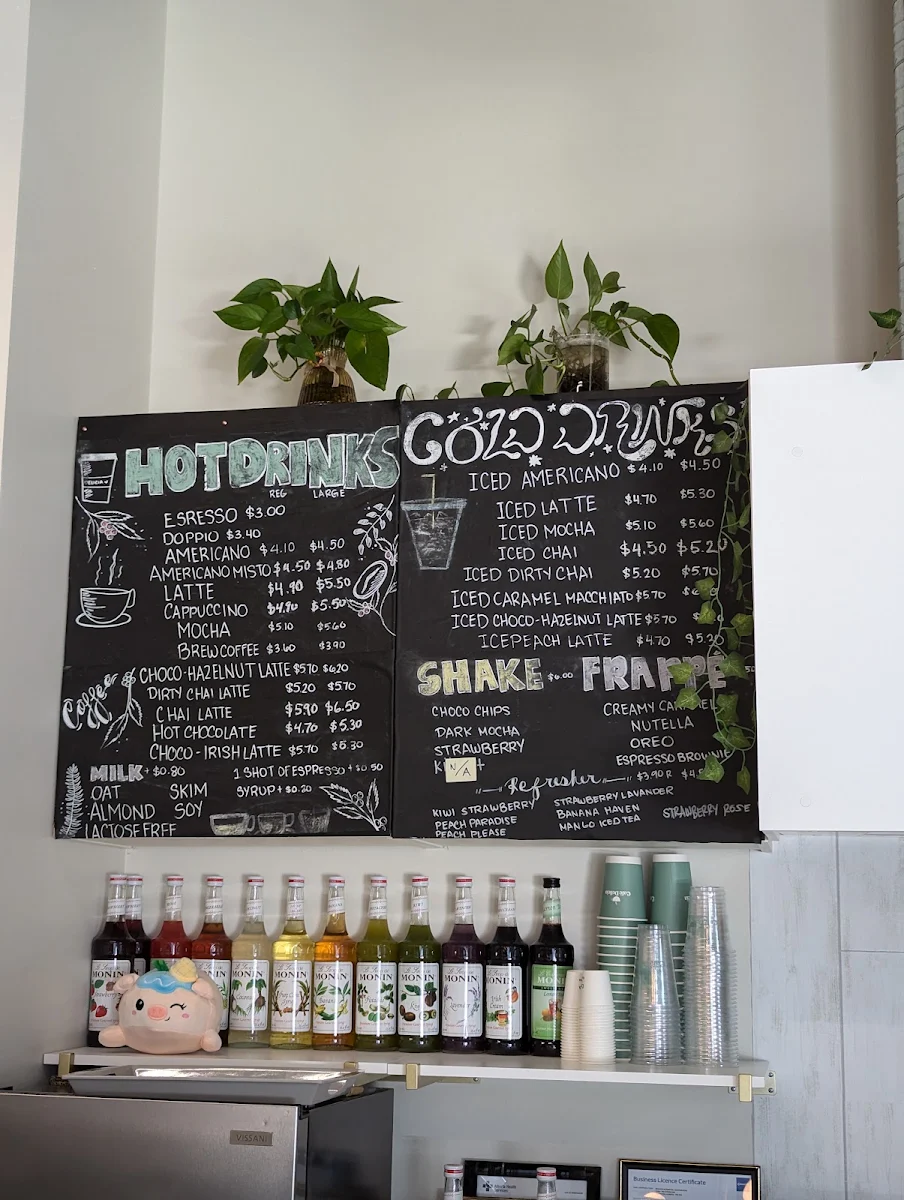 HOT DRINKS
REG LARGE
ESPRESSO $3.00
DOPPIO $3.40
AMERICANO $4.10 $4.50
AMERICANO MISTO $4.50 $4.80
LATTE $4.90 $5.50
CAPPUCCINO $4.90 $5.50
MOCHA $5.10 $5.60
BREWCOFFEE $3.60 $3.90
CHOCO-HAZELNUT LATTE $5.70 $6.20
DIRTY CHAI LATTE $5.20 $5.70
CHAI LATTE $5.90 $6.50
HOT CHOCOLATE $4.70 $5.30
CHOCO-IRISH LATTE $5.70 $6.30
Coffee
MILK +$0.80
OAT SKIM
ALMOND SOY
LACTOSE FREE
1 SHOT OF ESPRESSO +$0.50
SYRUP +$0.20
COLD DRINKS
ICED AMERICANO $4.10 $4.50
ICED LATTE $4.70 $5.30
ICED MOCHA $5.10 $5.60
ICED CHAI $4.50 $5.20
ICED DIRTY CHAI $5.20 $5.70
ICED CARAMEL MACCHIATO $5.70
ICED CHOCO-HAZELNUT LATTE $5.70
ICEPEACH LATTE $4.70 $5.30
SHAKE $6.00
CHOCO CHIPS
DARK MOCHA
STRAWBERRY
N/A
FRAPPE
CREAMY CARAMEL
NUTELLA
OREO
ESPRESSO BROWNIE
Refresher
$3.90 R
KIWI STRAWBERRY
PEACH PARADISE
PEACH PLEASE
STRAWBERRY LAVANDER
BANANA HAVEN
MANGO ICED TEA
STRAWBERRY ROSE
MONIN
MONIN
MONIN
MONIN
MONIN
MONIN
MONIN
MONIN
MONIN
VISSANI
Business Licence Certificate